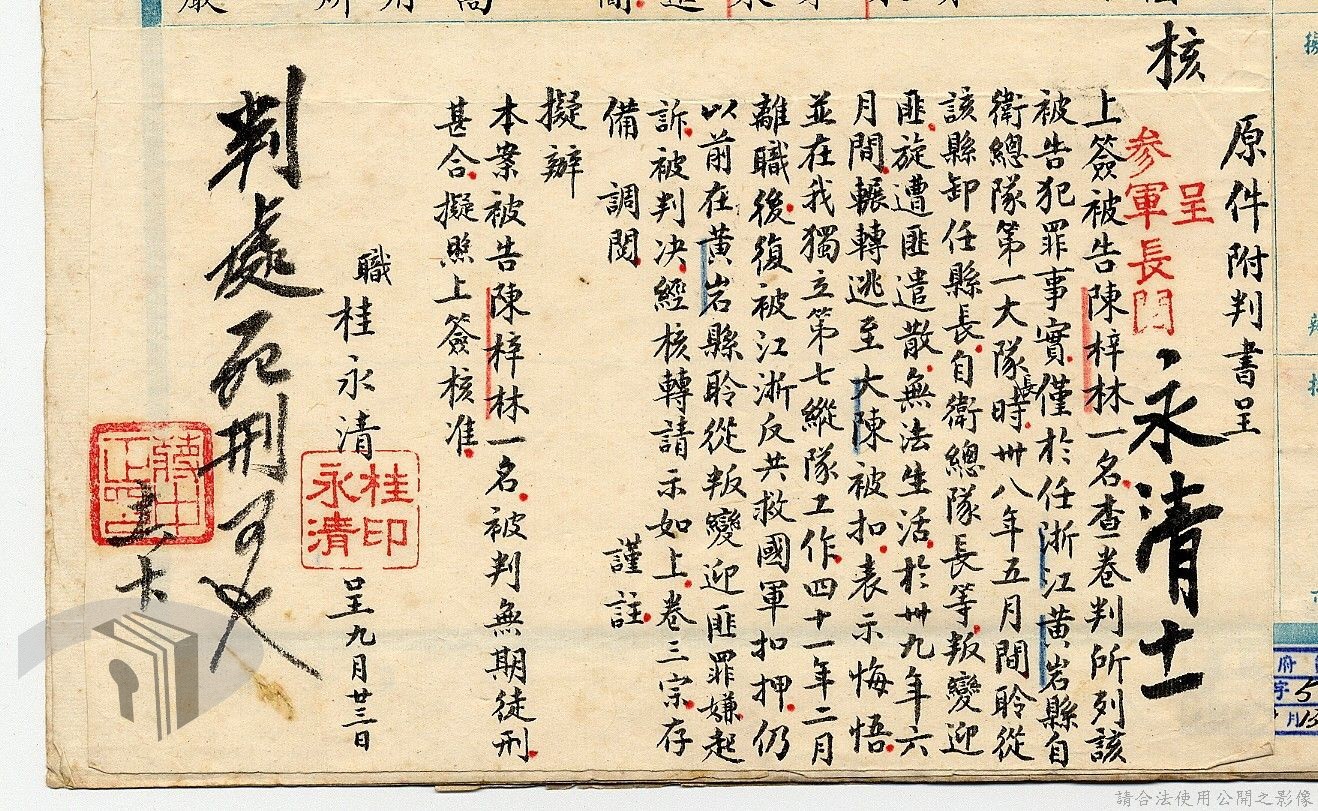 核
原件附判書呈
呈
參軍長閱
永清
上簽被告陳梓林一名查卷判所列該
被告犯罪事實僅於任浙江黃岩縣自
衛總隊第一大隊長時卅八年五月間聆從
該縣卸任縣長自衛總隊長等叛變迎
匪旋遭匪遣散無法生活於卅九年六
月間輾轉逃至大陳被扣表示悔悟
並在我獨立第七縱隊工作四十一年二月
離職後復被江浙反共救國軍扣押仍
以前在黃岩縣聆從叛變迎匪罪嫌起
訴被判決經核轉請示如上卷三宗存
備調閱 謹註
擬辦
本案被告陳梓林一名被判無期徒刑
甚合擬照上簽核准
職桂永清
桂永清印
呈九月廿三日
判處死刑可也
蔣中正印
請合法使用公開之影像